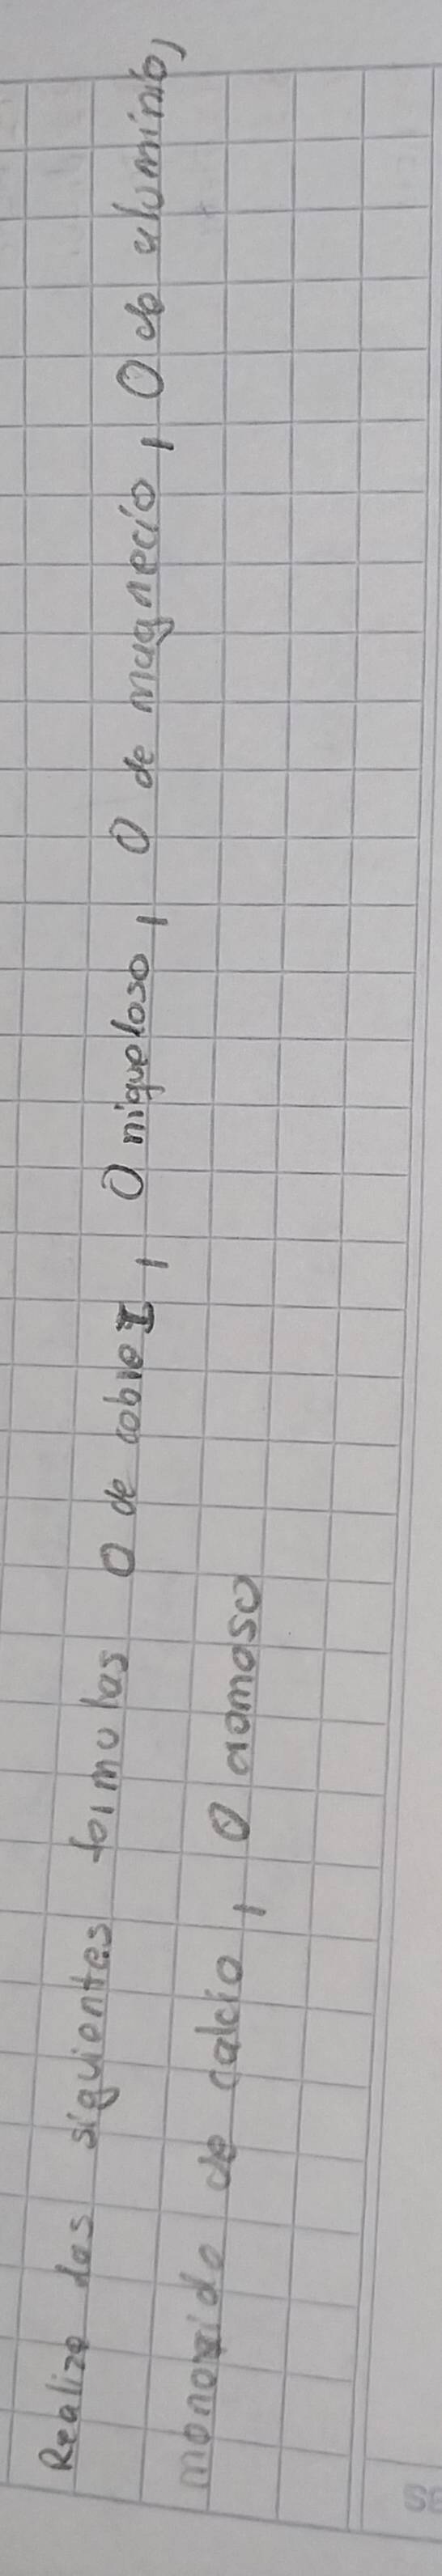 Realiza las siguientes formulas O de cobre I, O niqueloso, O de magnecio, O de aluminio,
monoxido de calcio, O cromoso